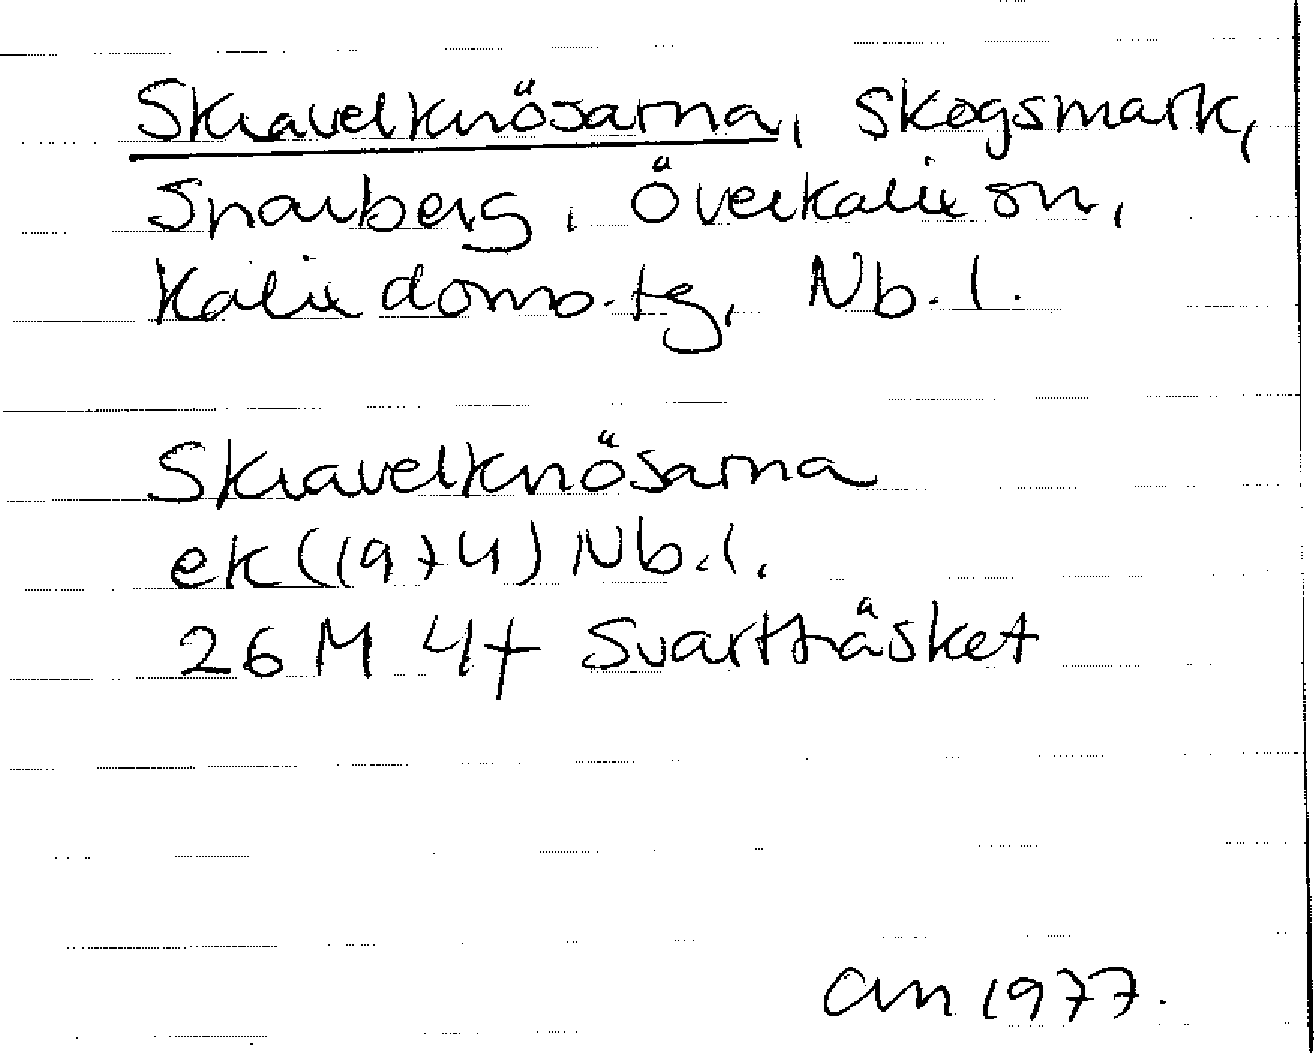 Skravelknösarna, skogsmark,
Snarberg, Överkalix sn,
Kalix doms.tg, Nb.l.
Skravelknösarna
ek (1974) Nb.l.
26 M 4f Svartträsket
am 1977.